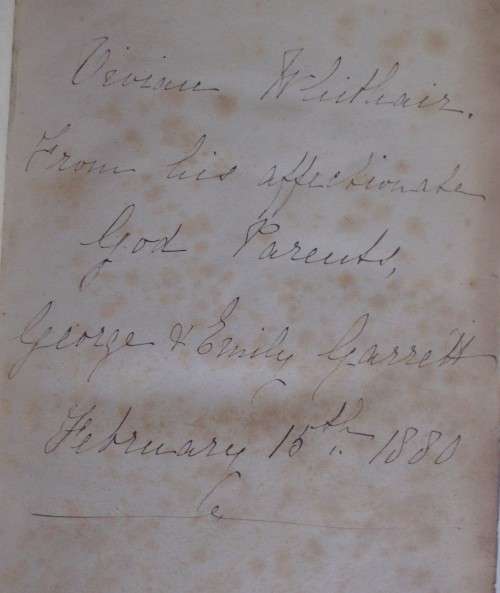 Vivian Whithair.
From his affectionate
God Parents,
George & Emily Garrett
February 15th. 1880